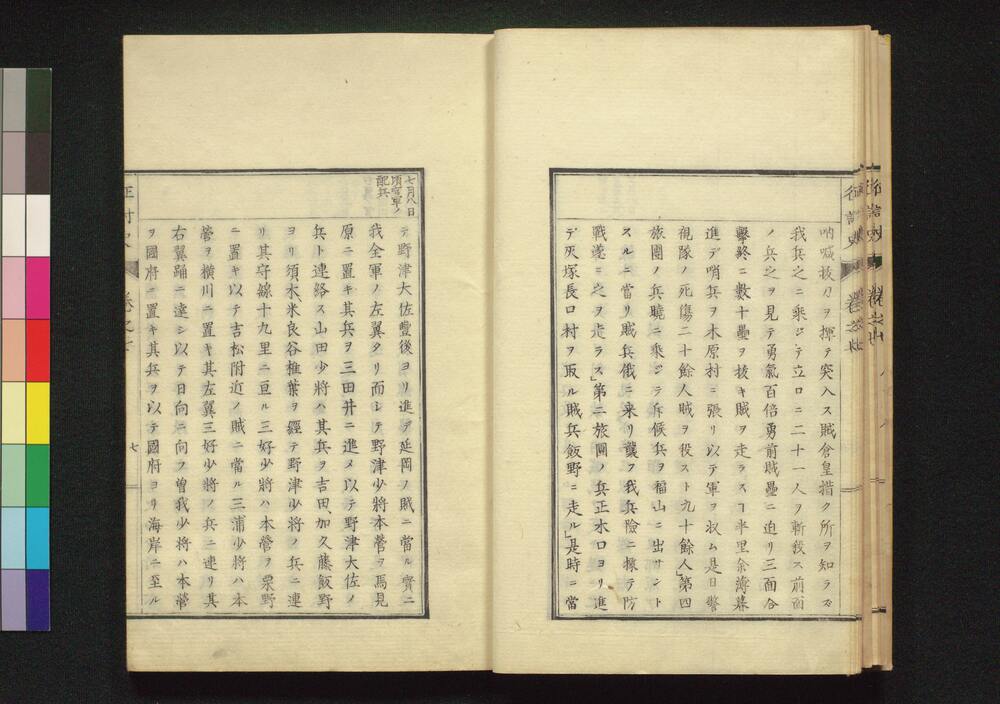 吶喊拔刀ヲ揮テ突入ス賊倉皇措ク所ヲ知ラズ
我兵之ニ乘ジテ立ロニ二十一人ヲ斬殺ス前面
ノ兵之ヲ見テ勇氣百倍勇前賊壘ニ迫リ三面合
擊終ニ數十壘ヲ拔キ賊ヲ走ラスヿ半里余薄暮
進デ哨兵ヲ木原村ニ張リ以テ軍ヲ收ム是日警
視隊ノ死傷二十餘人賊ヲ役スト九十餘人」第四
旅團ノ兵曉ニ乘ジテ斥候兵ヲ福山ニ出サント
スルニ當リ賊兵俄ニ来リ襲フ我兵險ニ據テ防
戰遂ニ之ヲ走ラス」第二旅團ノ兵正木口ヨリ進
デ灰塚長口村ヲ取ル賊兵飯野ニ走ル」是時ニ當
七月八日
頃官軍ノ
配兵
テ野津大佐豐後ヨリ進デ延岡ノ賊ニ當ル實ニ
我全軍ノ左翼タリ而シテ野津少將本營ヲ馬見
原ニ置キ其兵ヲ三田井ニ進メ以テ野津大佐ノ
兵ト連絡ス山田少将ハ其兵ヲ吉田、加久藤飯野
ヨリ須木、米良谷椎葉ヲ經テ野津少將ノ兵ニ連
リ其守線十九里ニ亘ル三好少將ハ本營ヲ栗野
ニ置キ以テ吉松附近ノ賊ニ當ル三浦少將ハ本
營ヲ横川ニ置キ其左翼三好少將ノ兵ニ連リ其
右翼踊ニ達シ以テ日向ニ向フ曽我少將ハ本營
ヲ國府ニ置キ其兵ヲ以テ國府ヨリ海岸ニ至ル
七